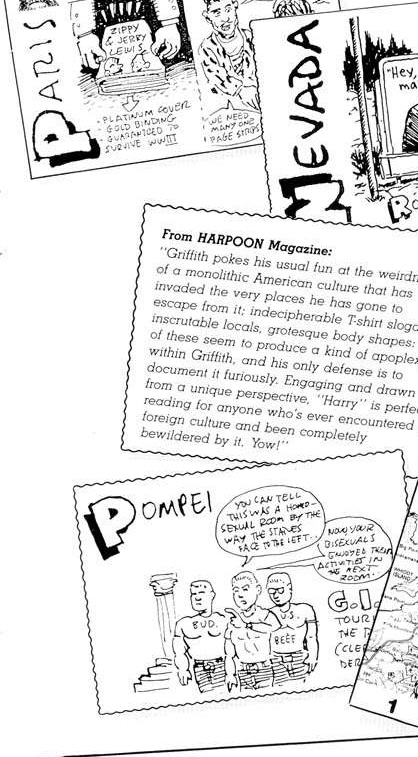 PARIS
ZIPPY
& JERRY
LEWIS
• PLATINUM COVER
• GOLD BINDING
• GUARANTEED TO
SURVIVE WWIII
WE NEED
MANY ONE
PAGE STRIPS
NEVADA
"Hey,
From HARPOON Magazine:
"Griffith pokes his usual fun at the weirdn
of a monolithic American culture that has
invaded the very places he has gone to
escape from it; indecipherable T-shirt sloga
inscrutable locals, grotesque body shapes:
of these seem to produce a kind of apoplex
within Griffith, and his only defense is to
document it furiously. Engaging and drawn
from a unique perspective, "Harry" is perfe
reading for anyone who's ever encountered
foreign culture and been completely
bewildered by it. Yow!"
POMPEI
YOU CAN TELL
THIS WAS A HOMO-
SEXUAL ROOM BY THE
WAY THE STATUES
FACE TO THE LEFT..
NOW, YOUR
BISEXUALS
ENJOYED THEIR
ACTIVITIES IN
THE NEXT
ROOM.
BUD.
U.S.
BEEF
G.I.
TOUR
THE
DER
1